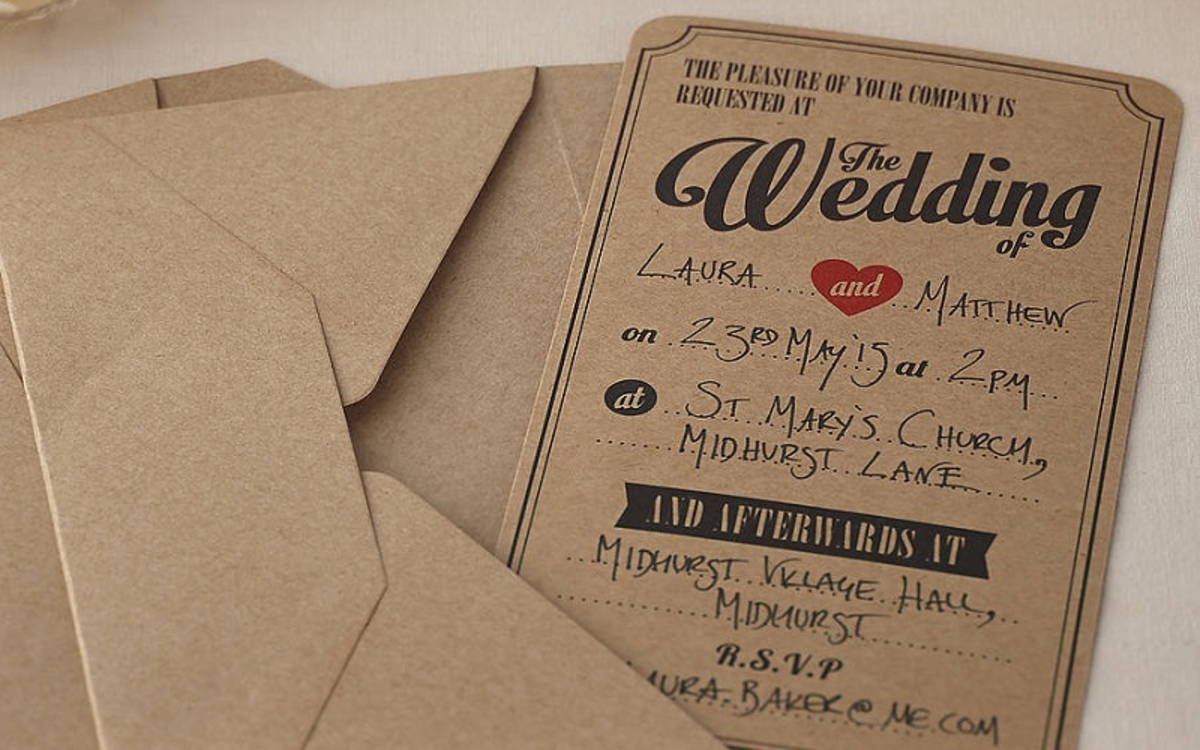 THE PLEASURE OF YOUR COMPANY IS
REQUESTED AT
The
Wedding
of
LAURA and MATTHEW
on 23RD MAY '15 at 2PM
at ST MARY'S CHURCH,
MIDHURST LANE
AND AFTERWARDS AT
MIDHURST VILLAGE HALL,
MIDHURST
R.S.V.P
AURA.BAKER@ME.COM